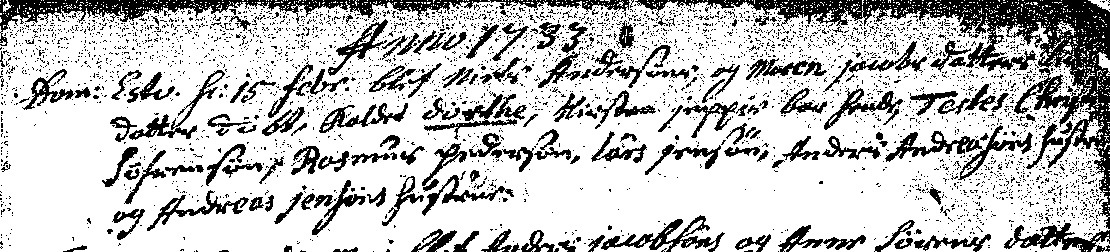 Anno 1733
Dom: Esto. h: 15 febr. blef Niels Andersøns, og Maren jacobs datters
datter døbt, Kaldet dorthe, Kirsten jeppis bar hend, Testes Chr
Sørrensøn, Rasmus pedersøn, lars jensøn, Anders Andreasøns hustru
og Andreas jensøns hustrue.
blef Anders jacobsøns og Anne Sørens datters